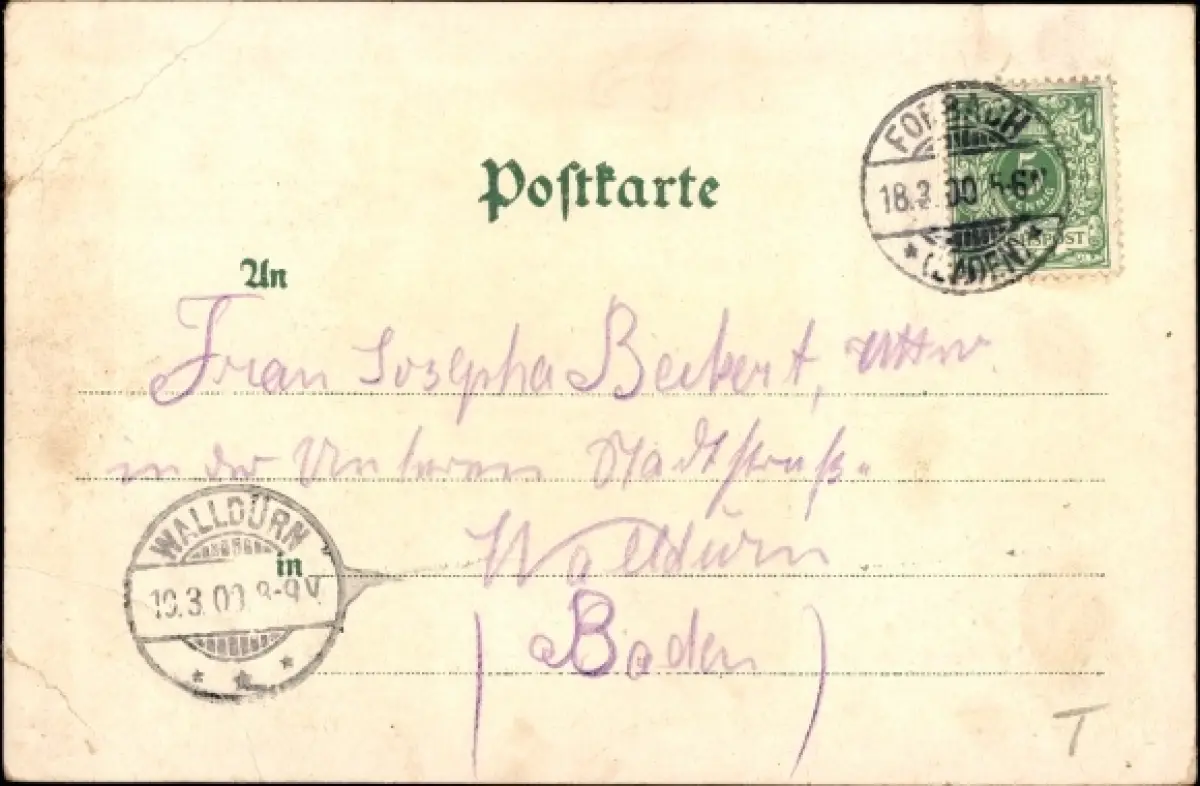 Postkarte
FORBACH
18.3.00 5-6N
* (BADEN) *
5
REICHSPOST
An
Frau Josepha Beckert,
in der Unteren Stadtstraß
WALLDÜRN
in
Walldürn
19.3.00 8-9V
(Baden)
T